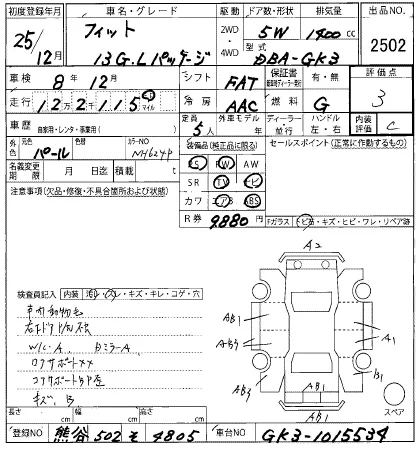 初度登録年月 車名・グレード 駆動 ドア数・形状 排気量 出品NO.
25/12月 フィット 2WD・4WD 5W 1400cc 2502
13G.Lパッケージ 型式 DBA-GK3
車検 8年12月 シフト FAT 保証書 有・無 評価点 3
走行 12万2千115 km マイル 冷房 AAC 燃料 G
車歴 自家用・レンタ・事業用( ) 定員 5人 外車モデル 年 ディーラー・並行 ハンドル 左・右 内装評価 C
外色 元色 パール 色替 カラーNO NH624P 装備品(純正品に限る) セールスポイント(正常に作動するもの)
名義変更期限 月 日迄 積載 t
PS PW AW
SR TV ナビ
カワ エアB ABS
R券 9880円
注意事項(欠品・修復・不具合箇所および状態)
Fガラス(トビ石・キズ・ヒビ・ワレ・リペア跡
検査員記入 内装(汚レ・スレ・キズ・キレ・コゲ・穴
W/C-A
A2
AB1
AB3
A1
AB3
B1
AB1
AB1
スペア
長さ cm 幅 cm 高さ cm
登録NO 熊谷 502 そ 4805 車台NO GK3-1015534